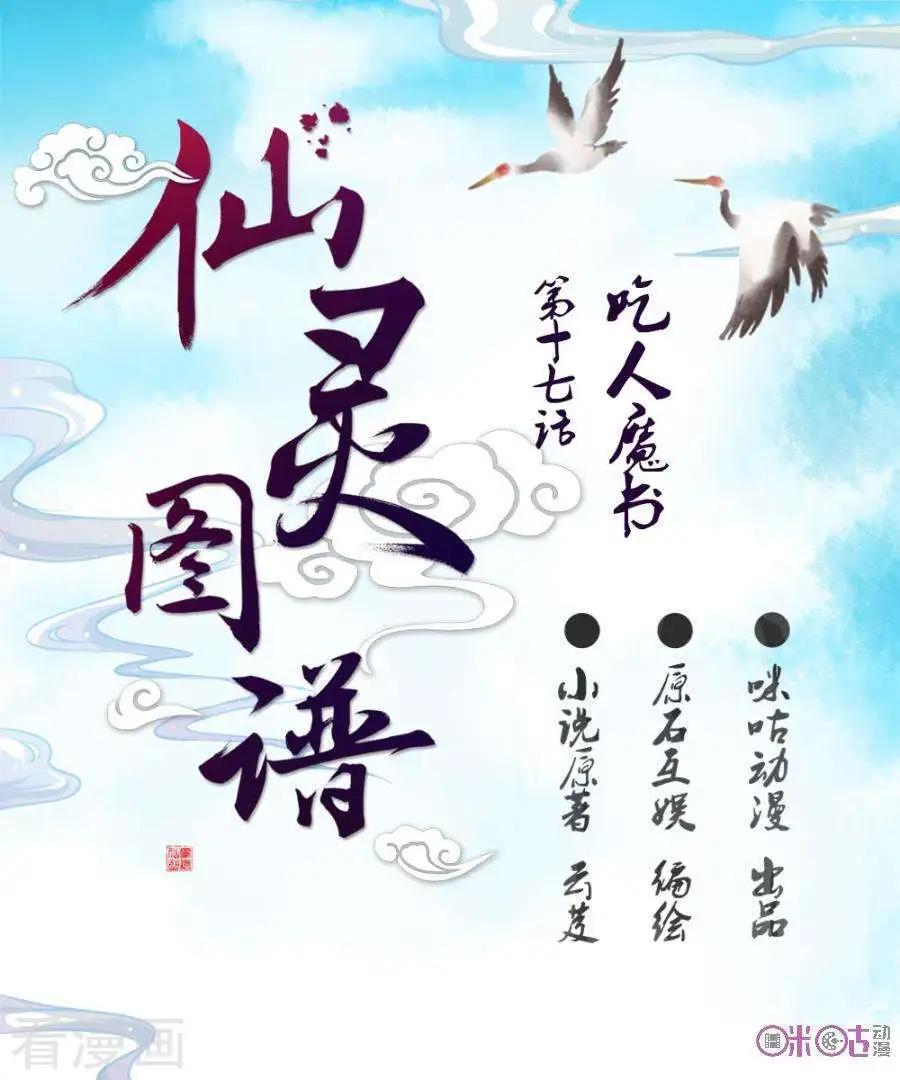 仙灵图谱
吃人魔书
第十七话
咪咕动漫 出品
原石互娱 编绘
小说原著 云芨
看漫画
咪咕动漫